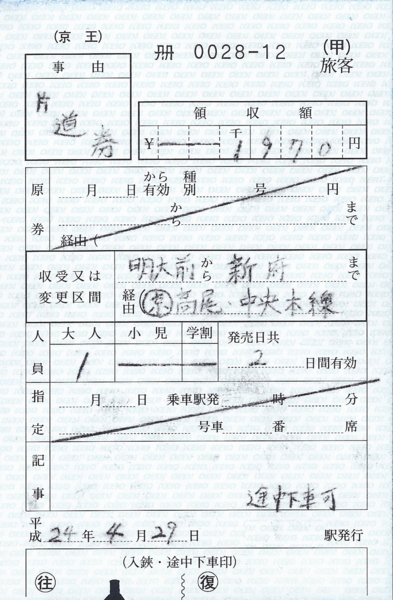 (京王) 冊 0028-12 (甲)
旅客
事由
片道券
領収額
¥ 千 1970 円
原券
月 日 から有効 種別 号 円
から まで
経由(
収受又は変更区間
明大前から新府まで
経由 高尾・中央本線
人員
大人 小児 学割 発売日共
1 2 日間有効
指定
月 日 乗車駅発 時 分
号車 番 席
記事
途中下車可
平成24年4月29日 駅発行
(入鋏・途中下車印)
往 復